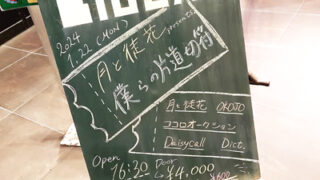 2024
1.22 (MON)
月と徒花 presents
僕らの片道切符
月と徒花 OKOJO
ココロオークション
DaisyCall Dict.
Open
16:30 Door
¥4,000
¥600